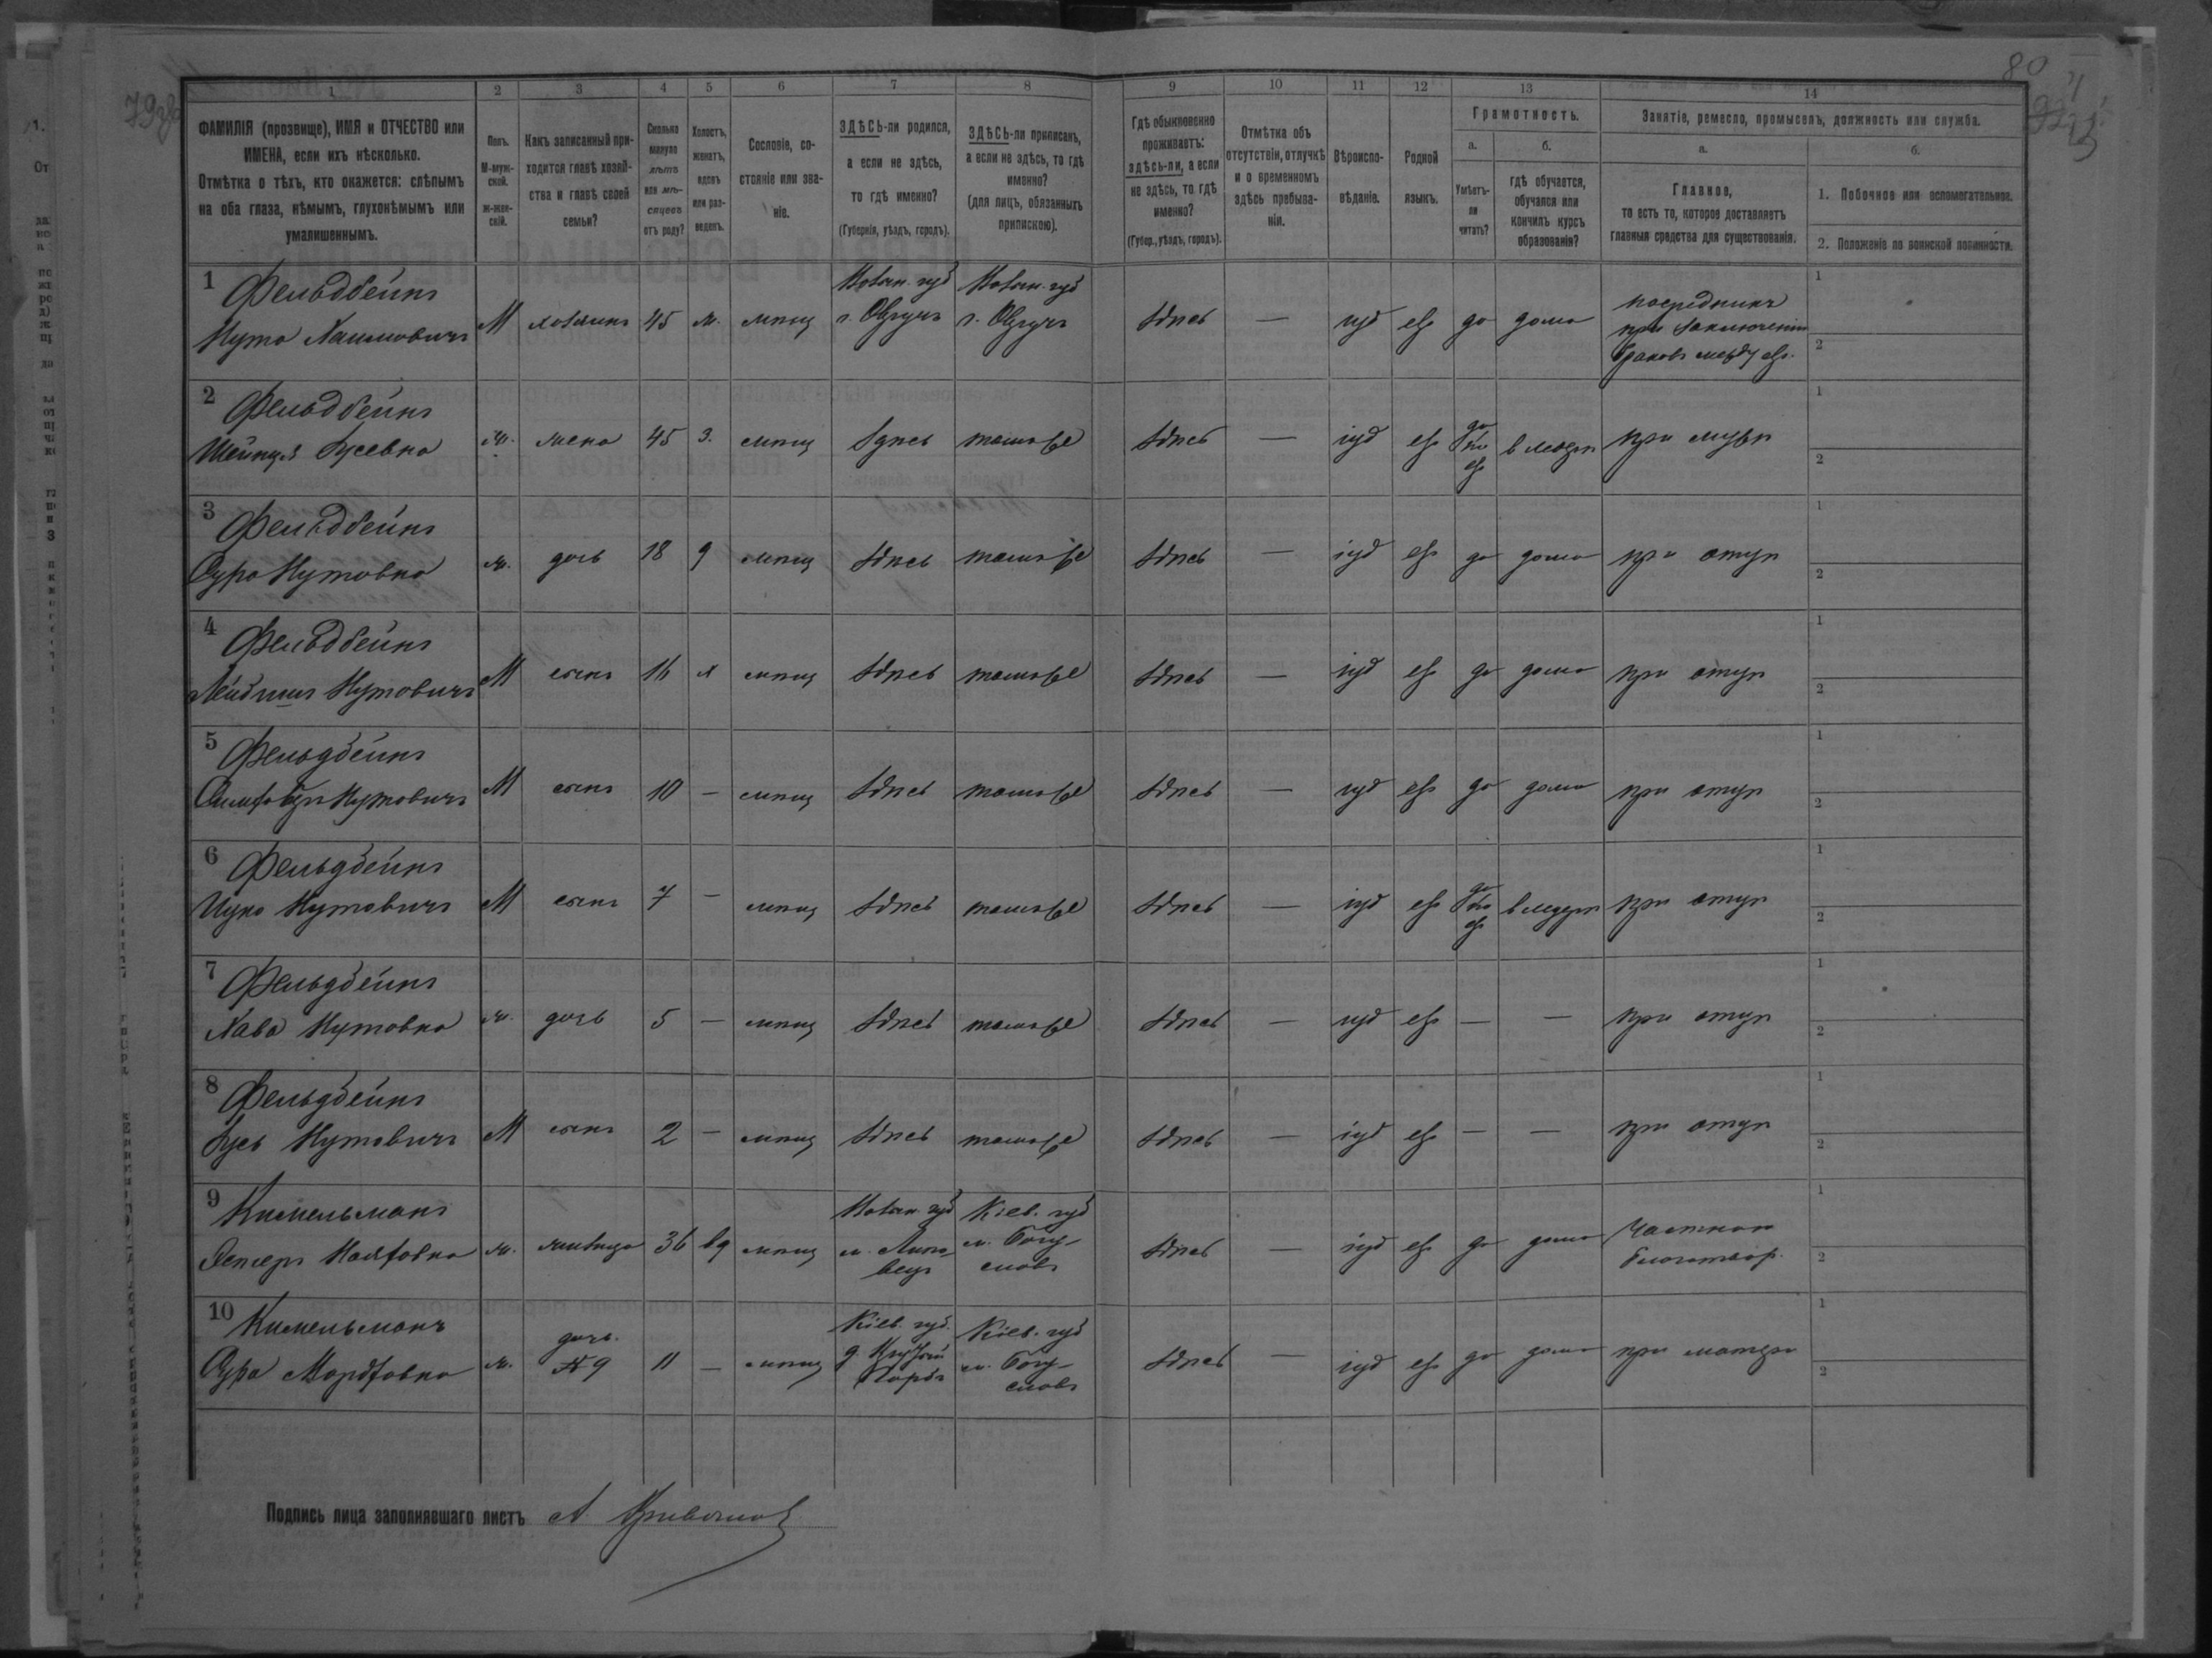 80
1 2 3 4 5 6 7 8 9 10 11 12 13 14
ФАМИЛІЯ (прозвище), ИМЯ и ОТЧЕСТВО или
ИМЕНА, если ихъ нѣсколько.
Отмѣтка о тѣхъ, кто окажется: слѣпымъ
на оба глаза, нѣмымъ, глухонѣмымъ или
умалишеннымъ.
Полъ.
М-муж-
ской.
ж-жен-
скій.
Какъ записанный при-
ходится главѣ хозяй-
ства и главѣ своей
семьи?
Сколько
минуло
лѣтъ
или мѣ-
сяцевъ
отъ роду?
Холостъ,
женатъ,
вдовъ
или раз-
веденъ.
Сословіе, со-
стояніе или зва-
ніе.
ЗДѢСЬ-ли родился,
а если не здѣсь,
то гдѣ именно?
(Губернія, уѣздъ, городъ).
ЗДѢСЬ-ли приписанъ,
а если не здѣсь, то гдѣ
именно?
(для лицъ, обязанныхъ
припискою).
Гдѣ обыкновенно
проживаетъ:
здѣсь-ли, а если
не здѣсь, то гдѣ
именно?
(Губер., уѣздъ, городъ).
Отмѣтка объ
отсутствіи, отлучкѣ
и о временномъ
здѣсь пребыва-
ніи.
Вѣроиспо-
вѣданіе.
Родной
языкъ.
Грамотность.
а.
Умѣетъ-
ли
читать?
б.
гдѣ обучается,
обучался или
кончилъ курсъ
образованія?
Занятіе, ремесло, промыселъ, должность или служба.
а.
Главное,
то есть то, которое доставляетъ
главныя средства для существованія.
б.
1. Побочное или вспомогательное.
2. Положеніе по воинской повинности.
1 Фельдбейнъ
Нута Хаимовичъ М хозяинъ 45 ж. мпщ
Волын. губ
г. Овручъ
Волын. губ
г. Овручъ
здѣсь — іуд евр да дома
посредникъ
при заключеніи
браковъ между евр.
1
2
2 Фельдбейнъ
Шейндл Бусевна ж. жена 45 з. мпщ здѣсь тамъ же здѣсь — іуд евр да по евр в хедерѣ при мужѣ
1
2
3 Фельдбейнъ
Сура Нутовна ж. дочь 18 д мпщ здѣсь тамъ же здѣсь — іуд евр да дома при отцѣ
1
2
4 Фельдбейнъ
Лейбишъ Нутовичъ М сынъ 16 х мпщ здѣсь тамъ же здѣсь — іуд евр да дома при отцѣ
1
2
5 Фельдбейнъ
Нутовичъ М сынъ 10 — мпщ здѣсь тамъ же здѣсь — іуд евр да дома при отцѣ
1
2
6 Фельдбейнъ
Нутовичъ М сынъ 7 — мпщ здѣсь тамъ же здѣсь — іуд евр да по евр в хедерѣ при отцѣ
1
2
7 Фельдбейнъ
Хава Нутовна ж. дочь 5 — мпщ здѣсь тамъ же здѣсь — іуд евр — — при отцѣ
1
2
8 Фельдбейнъ
Бусь Нутовичъ М сынъ 2 — мпщ здѣсь тамъ же здѣсь — іуд евр — — при отцѣ
1
2
9 Кимельманъ
Эстеръ ж. жилица 36 вд мпщ
Волын. губ
м.
Кіев. губ
м. Богу-
славъ
здѣсь — іуд евр да дома
Частная
благотвор.
1
2
10 Кимельманъ
Сура Мордковна ж. дочь
№ 9 11 — мпщ
Кіев. губ.
Кіев. губ
м. Богу-
славъ
здѣсь — іуд евр да дома при матери
1
2
Подпись лица заполнявшаго листъ А